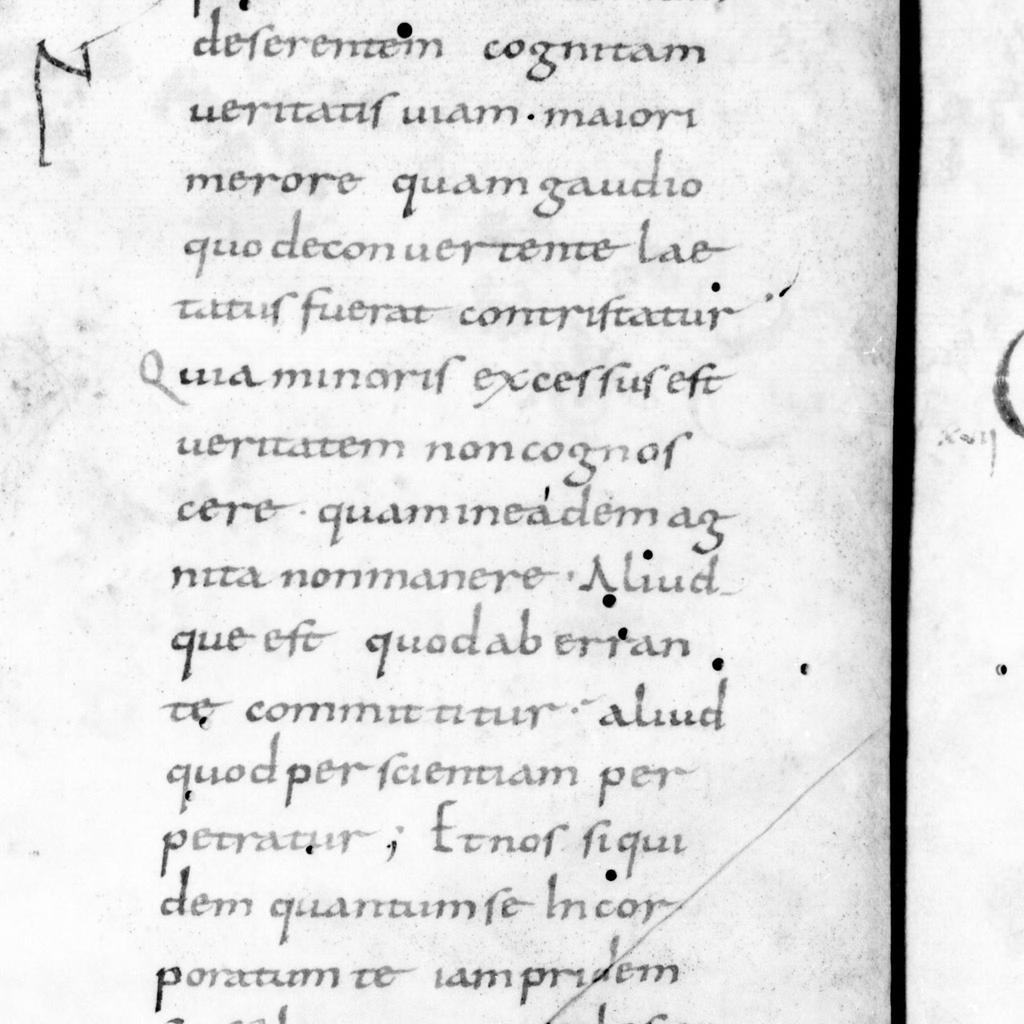 N
deserentem cognitam
ueritatis uiam · maiori
merore quam gaudio
quo deconuertente lae
tatus fuerat contristatur
Quia minoris excessus est
ueritatem non cognos
cere · quam in eádem ag
nita non manere · Aliud
que est quod ab erran
te committitur · aliud
quod per scientiam per
petratur ; Et nos siqui
dem quantum se Incor
poratum te iam pridem
xvij